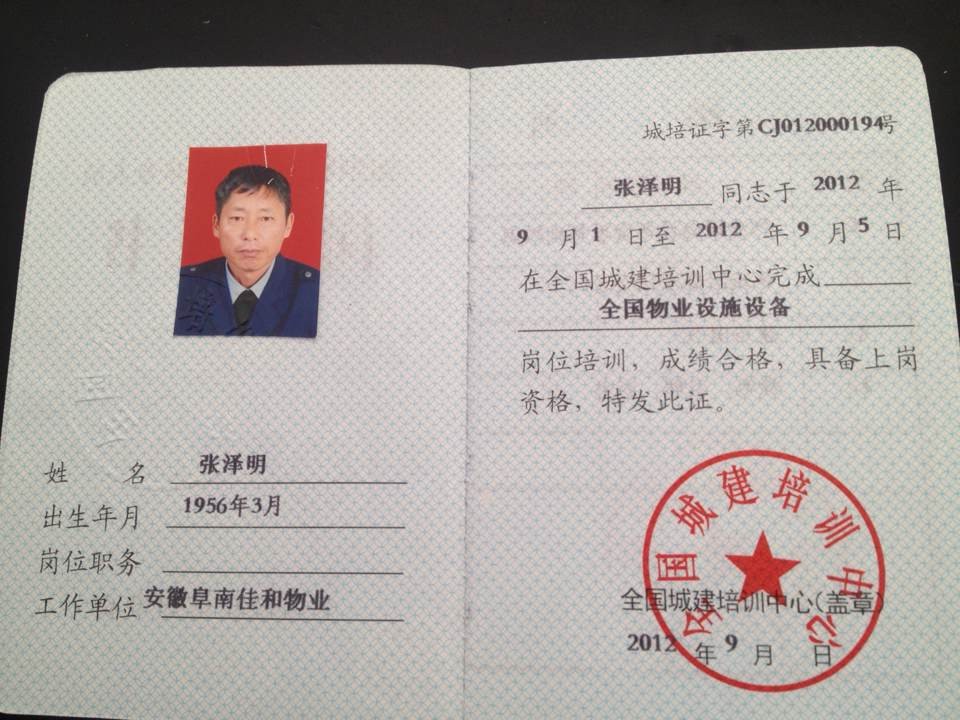 姓 名 张泽明
出生年月 1956年3月
岗位职务
工作单位 安徽阜南佳和物业
城培证字第CJ012000194号
张泽明 同志于 2012 年
9 月 1 日至 2012 年 9 月 5 日
在全国城建培训中心完成
全国物业设施设备
岗位培训，成绩合格，具备上岗
资格，特发此证。
全国城建培训中心
全国城建培训中心(盖章)
2012 年 9 月 日